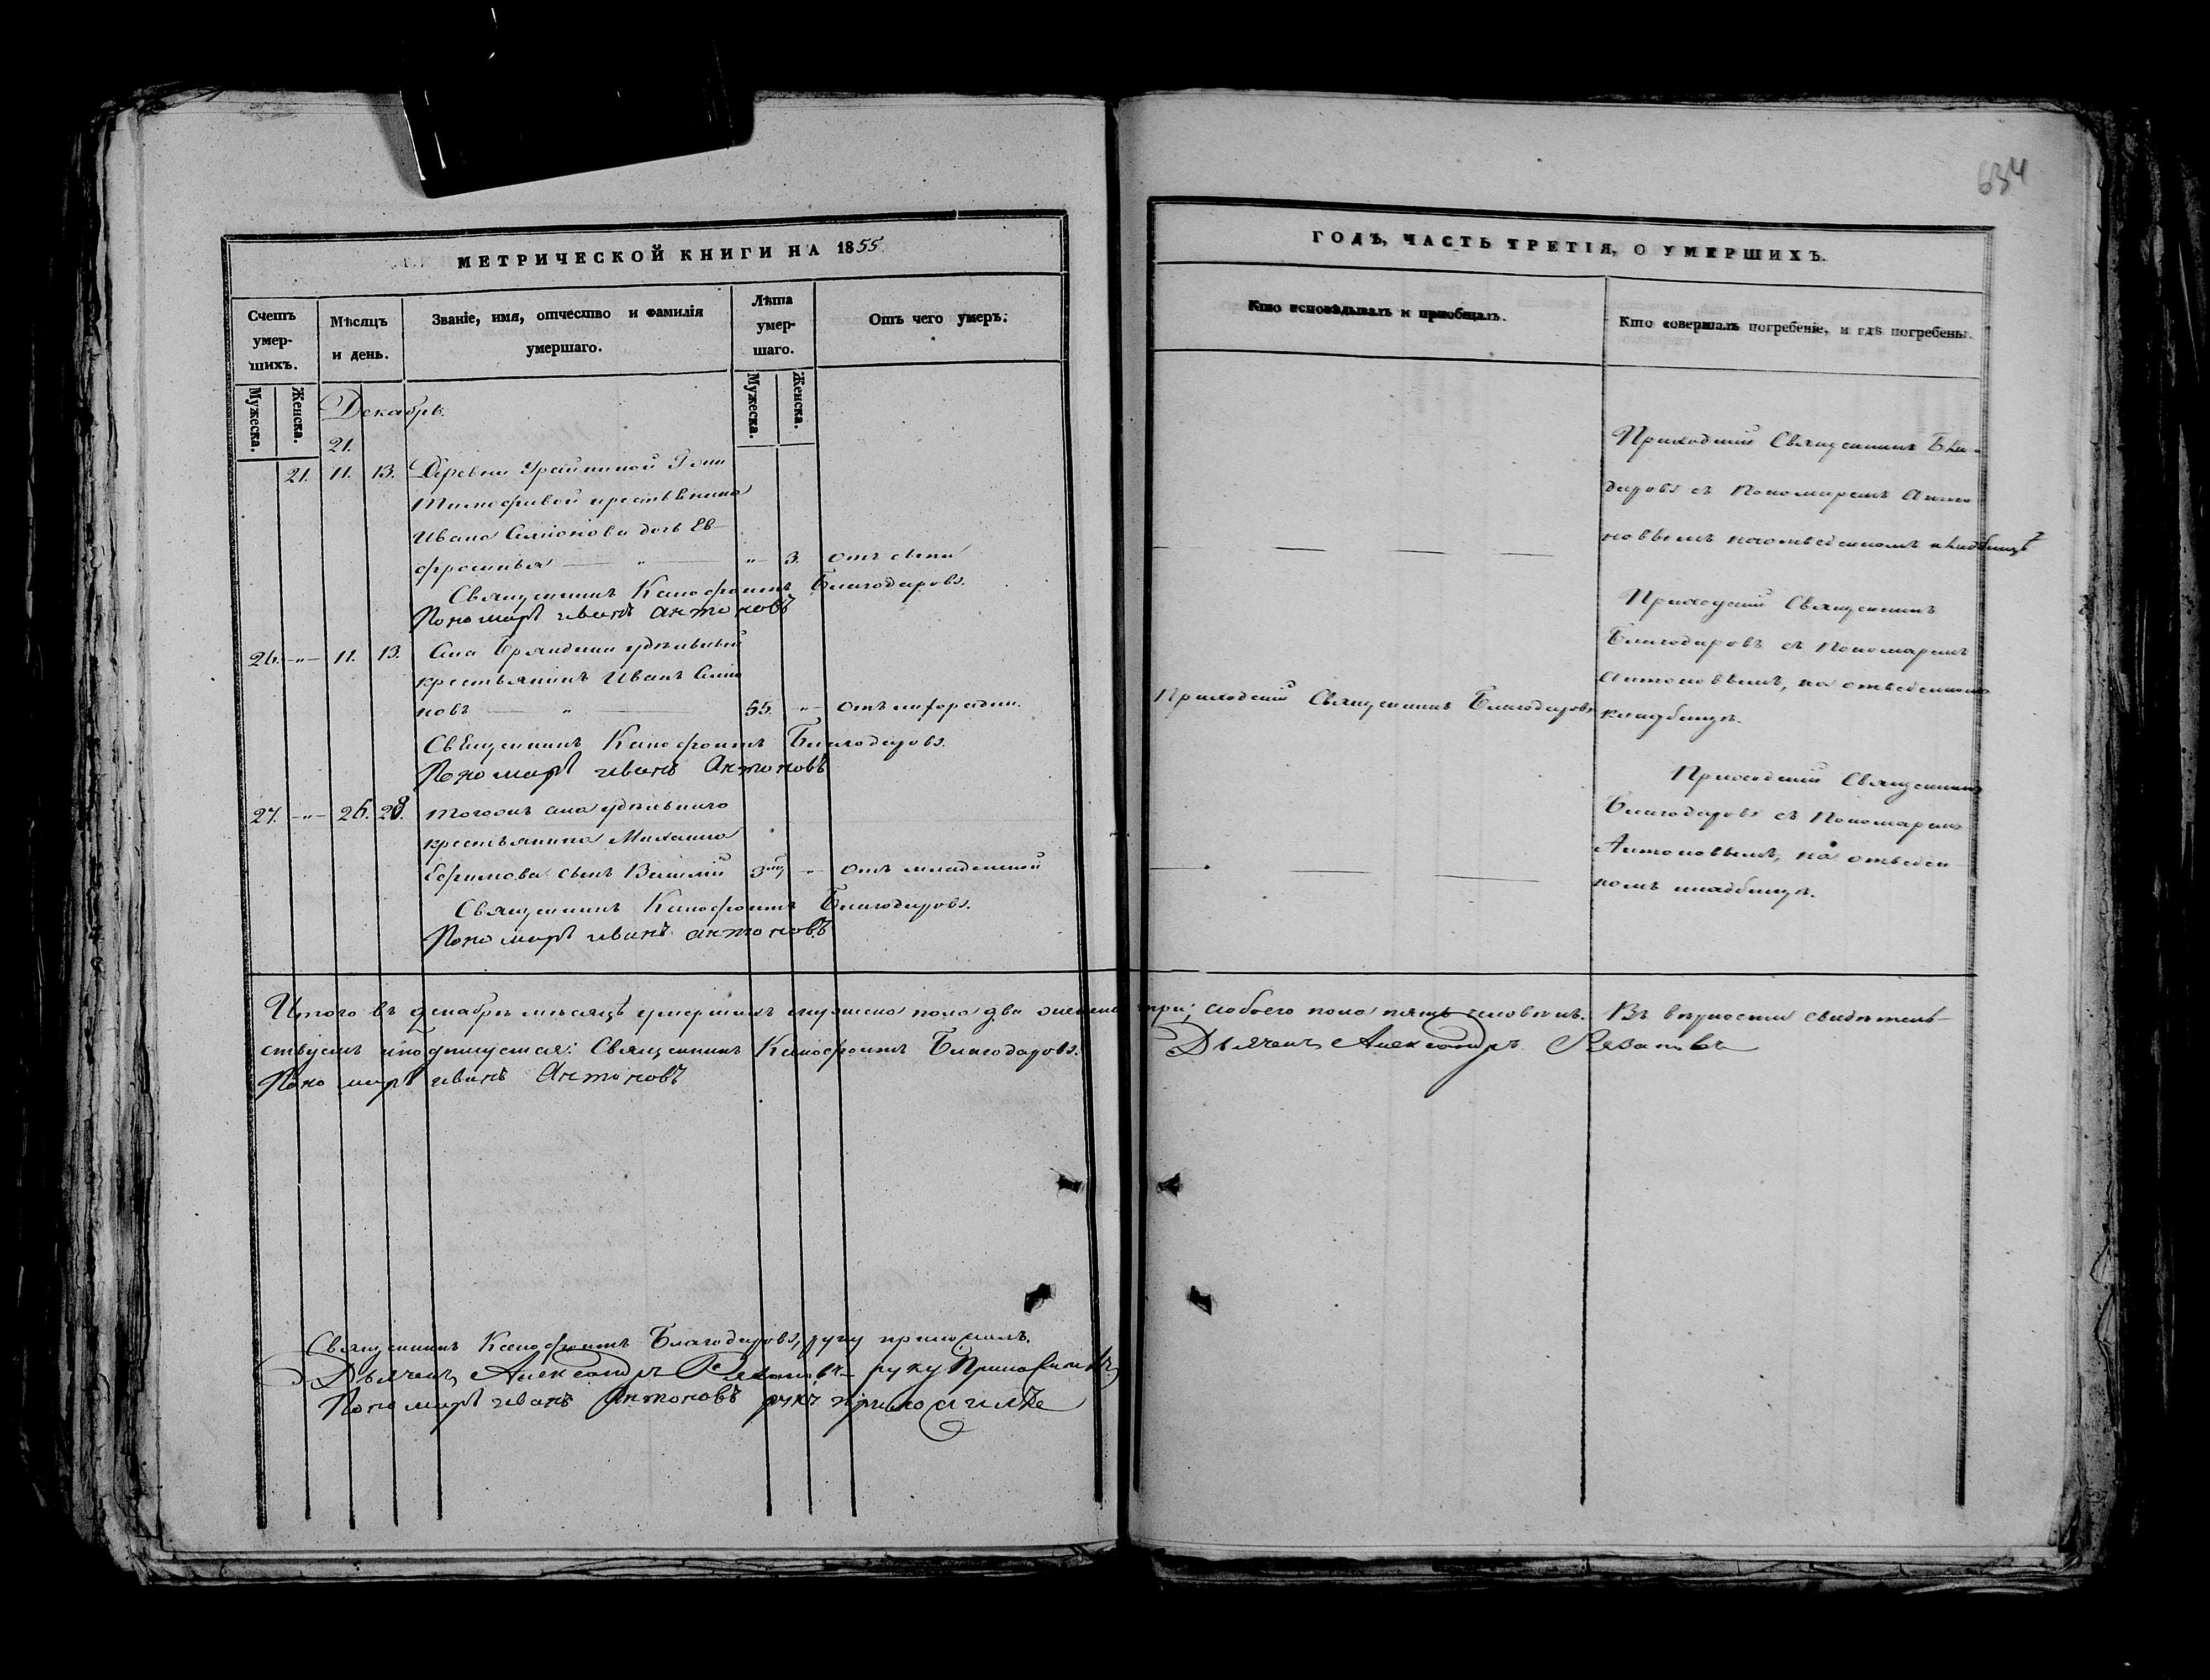 634
МЕТРИЧЕСКОЙ КНИГИ НА 1855
ГОДЪ, ЧАСТЬ ТРЕТІЯ, О УМЕРШИХЪ.
Счетъ умер-шихъ.
Мѣсяцъ и день.
Званіе, имя, отчество и фамилія умершаго.
Лѣта умер-шаго.
Отъ чего умеръ.
Кто исповѣдывалъ и пріобщалъ.
Кто совершалъ погребеніе, и гдѣ погребены.
Мужеска.
Женска.
Мужеска.
Женска.
Декабрь.
21.
21. 11. 13. Деревни
крестьянина
Ивана Симіонова дочь Ев-
фросинья — " — " — 3. Отъ оспы
Священникъ Ксенофонтъ Благодаровъ.
Пономарь Иванъ Антоновъ
Приходскій Священникъ Бла-
годаровъ съ Пономаремъ Анто
новымъ на отведенномъ кладбищѣ
26. — " — 11. 13. Села удѣльный
крестьянинъ Иванъ Симіо
новъ — " — 55. " — Отъ лихорадки.
Священникъ Ксенофонтъ Благодаровъ.
Пономарь Иванъ Антоновъ
Приходскій Священникъ Благодаровъ
Приходскій Священникъ
Благодаровъ съ Пономаремъ
Антоновымъ, на отведенномъ
кладбищѣ.
27. — " — 26. 28. Тогожъ села удѣльнаго
крестьянина Михаила
Ефимова сынъ Василій " — Отъ младенской
Священникъ Ксенофонтъ Благодаровъ.
Пономарь Иванъ Антоновъ
Приходскій Священникъ
Благодаровъ съ Пономаремъ
Антоновымъ, на отведен
номъ кладбищѣ.
Итого въ декабрѣ мѣсяцѣ умершихъ мужеска пола два женска три; а обоего пола пять человѣкъ. Въ вѣрности свидѣтель-
ствуемъ и подпишемся: Священникъ Ксенофонтъ Благодаровъ. Дьячекъ Александръ Рязановъ
Пономарь Иванъ Антоновъ
Священникъ Ксенофонтъ Благодаровъ, руку приложилъ.
Дьячекъ Александръ Рязановъ руку Приложилъ
Пономарь Иванъ Антоновъ руку приложилъ